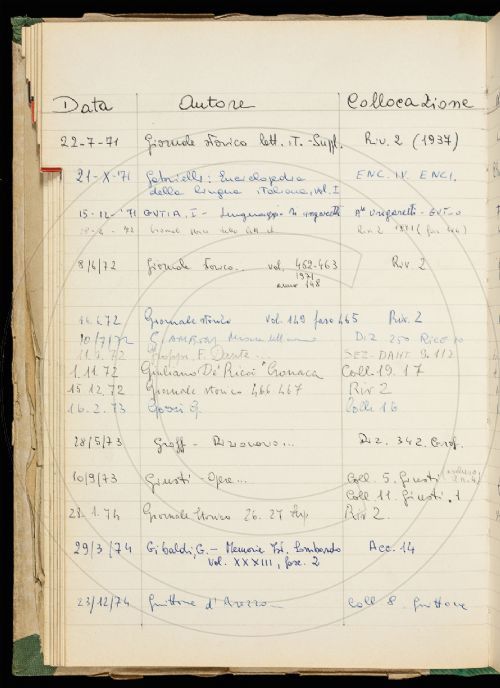 Data Autore Collocazione
22-7-71 Giornale storico lett. it. - Suppl. Riv. 2 (1937)
21-X-71 Gabrielli: Enciclopedia ENC. IV. ENCI.
della lingua italiana, vol. I
15-12-'71 GVTIA, I - Linguaggio
72 Riv. 2
8/6/72 Giornale storico... vol. 462-463 Riv. 2
1971
anno 148
72 Giornale storico vol. 149 fasc 465 Riv. 2
10/7/72 Diz 250
72 F. Dante... SEZ. DANT
1.11.72 Giuliano De' Ricci Cronaca Coll. 19.17
15 12.72 Giornale storico 466.467 Riv 2
16.2.73 Gozzi G. Coll. 16
28/5/73 Graff - Dizionario... Diz. 342. Graf.
10/9/73 Giusti - Opere... Coll. 5. Giusti
Coll 11. Giusti. 1
28.1.74 Giornale storico 26. 27 Sup Riv 2.
29/3/74 Gibaldi, G. - Memorie Ist. Lombardo Acc. 14
vol. XXXIII, fasc. 2
23/12/74 Guittone d'Arezzo Coll 8. Guittone